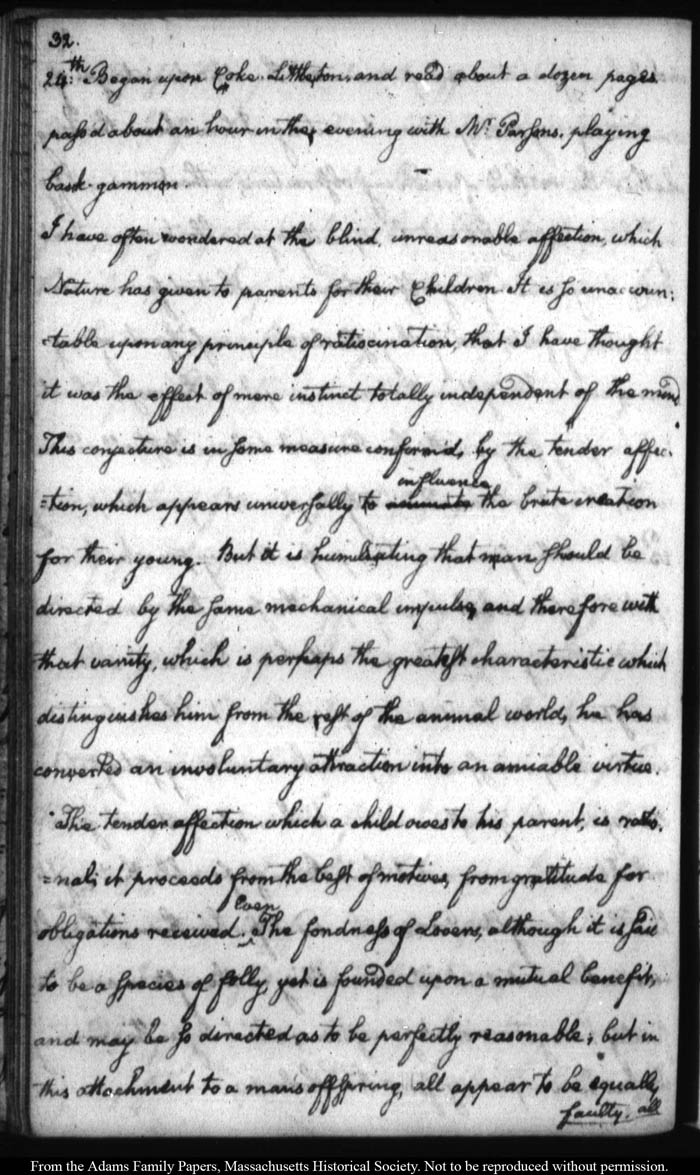 32.
24:th Began upon Coke-Littleton, and read about a dozen pages
pass'd about an hour in the evening with Mr. Parsons, playing
back-gammon.
I have often wondered at the blind, unreasonable affection, which
Nature has given to parents for their Children. It is so unaccoun:
=table upon any principle of ratiocination, that I have thought
it was the effect of mere instinct totally independent of the mind.
This conjecture is in some measure confirm'd, by the tender affec:
=tion, which appears universally to animate influence the brute creation
for their young. But it is humiliating that man should be
directed by the same mechanical impulse, and therefore with
that vanity, which is perhaps the greatest characteristic which
distinguishes him from the rest of the animal world, he has
converted an involuntary attraction into an amiable virtue.
The tender affection which a child owes to his parent, is ratio.
=nal; it proceeds from the best of motives, from gratitude for
obligations received. Even The fondness of Lovers, although it is said
to be a species of folly, yet is founded upon a mutual benefit,
and may be so directed as to be perfectly reasonable; but in
this attachment to a man's offspring, all appear to be equally
faulty. all
From the Adams Family Papers, Massachusetts Historical Society. Not to be reproduced without permission.